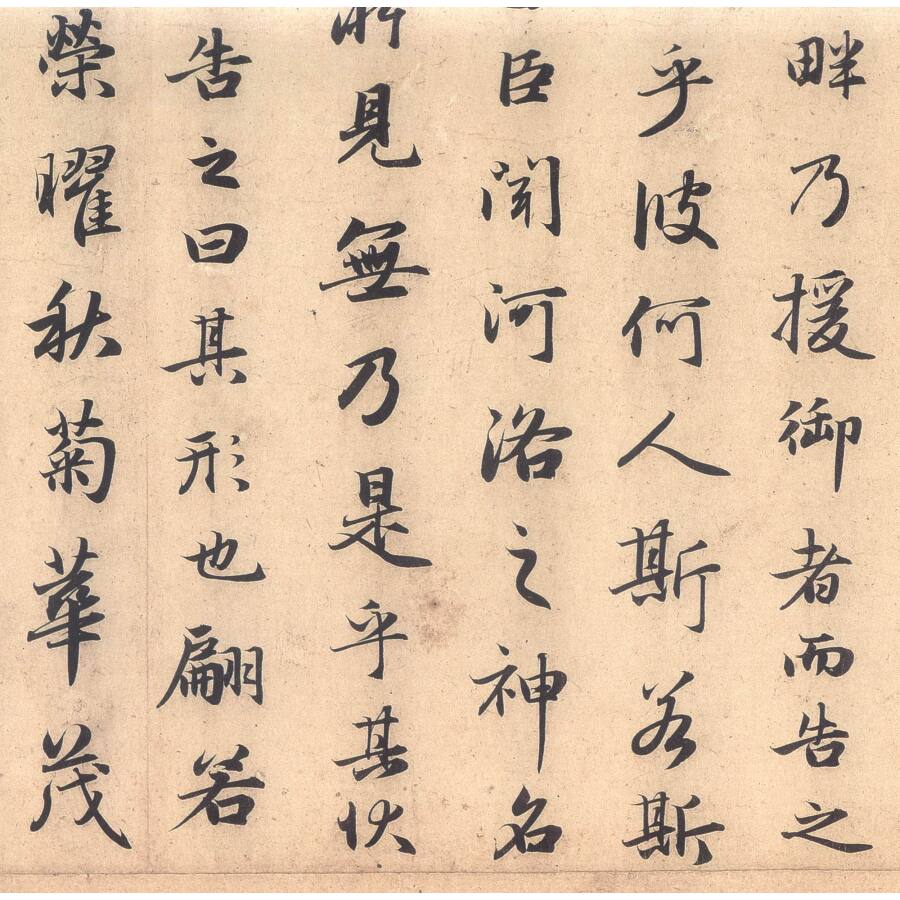 畔乃援御者而告之
乎彼何人斯若斯
臣聞河洛之神名
所見無乃是乎其状
告之曰其形也翩若
榮曜秋菊華茂